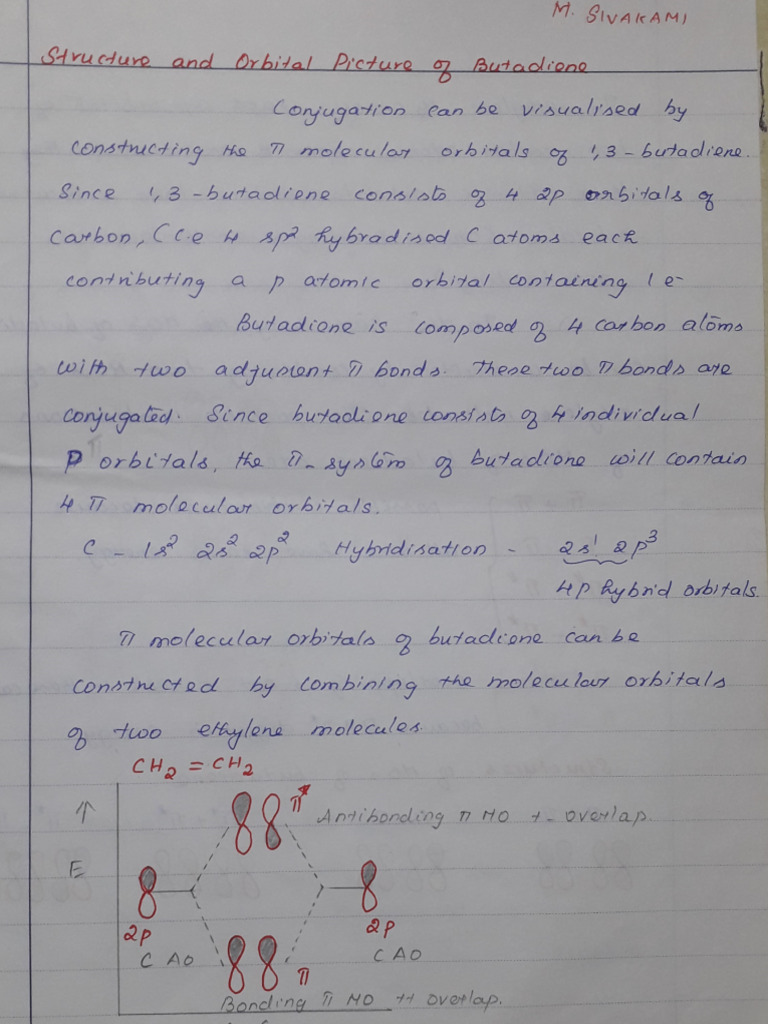 M. SIVAKAMI
Structure and Orbital Picture of Butadiene
Conjugation can be visualised by
constructing the π molecular orbitals of 1,3-butadiene.
Since 1,3-butadiene consists of 4 2p orbitals of
carbon, (i.e 4 sp² hybradised C atoms each
contributing a p atomic orbital containing 1 e-
Butadiene is composed of 4 carbon atoms
with two adjuscent π bonds. These two π bonds are
conjugated. Since butadiene consists of 4 individual
P orbitals, the π-system of butadiene will contain
4 π molecular orbitals.
C - 1s² 2s² 2p² Hybridisation - 2s¹ 2p³
4p hybrid orbitals.
π molecular orbitals of butadiene can be
constructed by combining the molecular orbitals
of two ethylene molecules.
CH₂ = CH₂
↑ π* Antibonding π MO +- overlap.
E
2p 2p
C AO C AO
π
Bonding π MO ++ overlap.